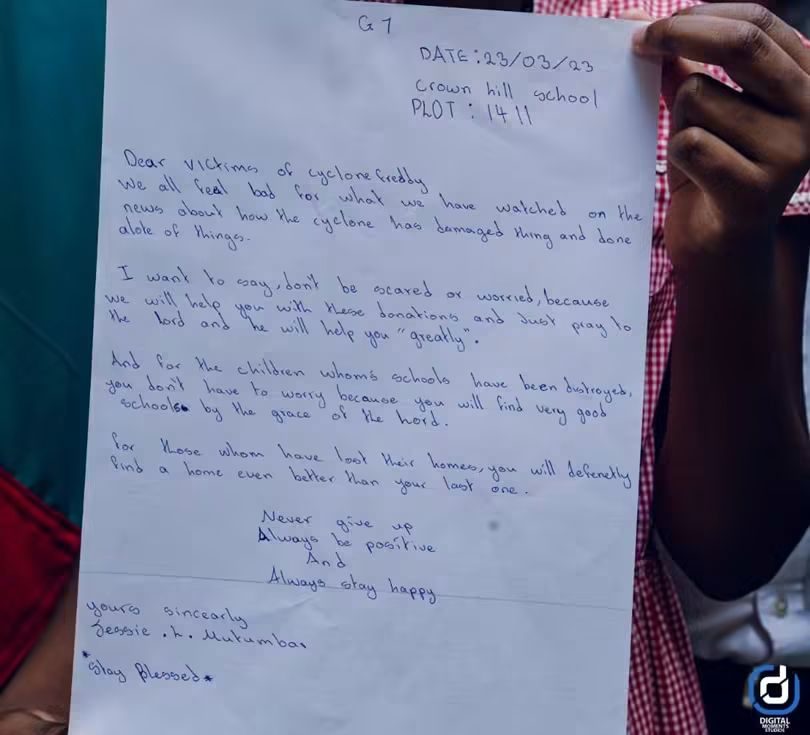 G 7
DATE : 23/03/23
Crown hill school
PLOT : 1411
Dear victims of cyclone freddy
We all feel bad for what we have watched on the
news about how the cyclone has damaged thing and done
alote of things.
I want to say, don't be scared or worried, because
we will help you with these donations and Just pray to
the lord and he will help you "greatly".
And for the children whom's schools have been destroyed,
you don't have to worry because you will find very good
schools by the grace of the Lord.
for those whom have lost their homes, you will defenetly
find a home even better than your last one.
Never give up
Always be positive
And
Always stay happy
yours sincearly
Jessie .L. Mutumba
*Stay Blessed*
DIGITAL
MOMENTS
STUDIOS